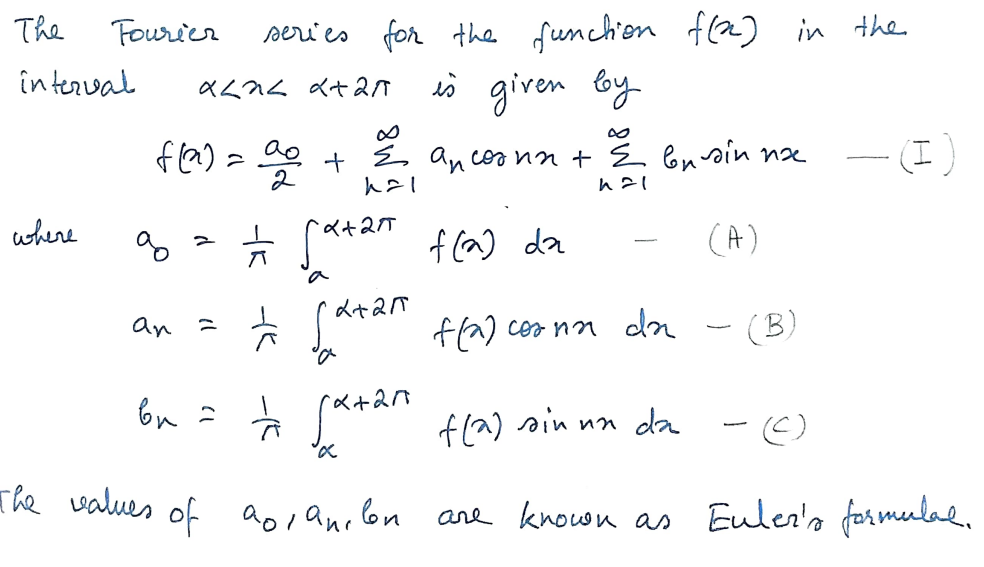 The Fourier series for the function f(x) in the
interval α<x< α+2π is given by
f(x) = a₀/2 + ∑_{n=1}^{∞} aₙ cos nx + ∑_{n=1}^{∞} bₙ sin nx — (I)
where a₀ = 1/π ∫_α^{α+2π} f(x) dx – (A)
aₙ = 1/π ∫_α^{α+2π} f(x) cos nx dx – (B)
bₙ = 1/π ∫_α^{α+2π} f(x) sin nx dx – (C)
The values of a₀, aₙ, bₙ are known as Euler's formulae.